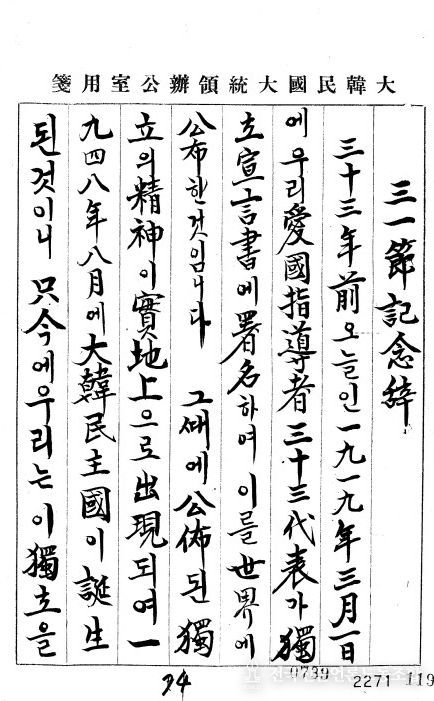 大韓民國大統領辦公室用箋
三一節記念辞
三十三年前오늘인一九一九年三月一日
에우리愛國指導者三十三代表가獨
立宣言書에署名하여이를世界에
公布한것임니다 그때에公佈된獨
立의精神이實地上으로出現되여一
九四八年八月에大韓民主國이誕生
된것이니 只今에우리는이獨立을
94
0739
2271
119